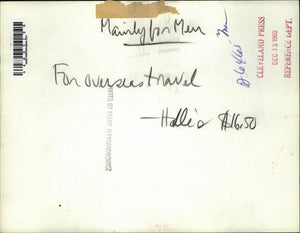 Mainly for Men
For overseas travel
— Halle's $16.50
CLEVELAND PRESS
DEC 15 1960
REFERENCE DEPT.
PHOTO BY FRANK ALEKSANDROWICZ